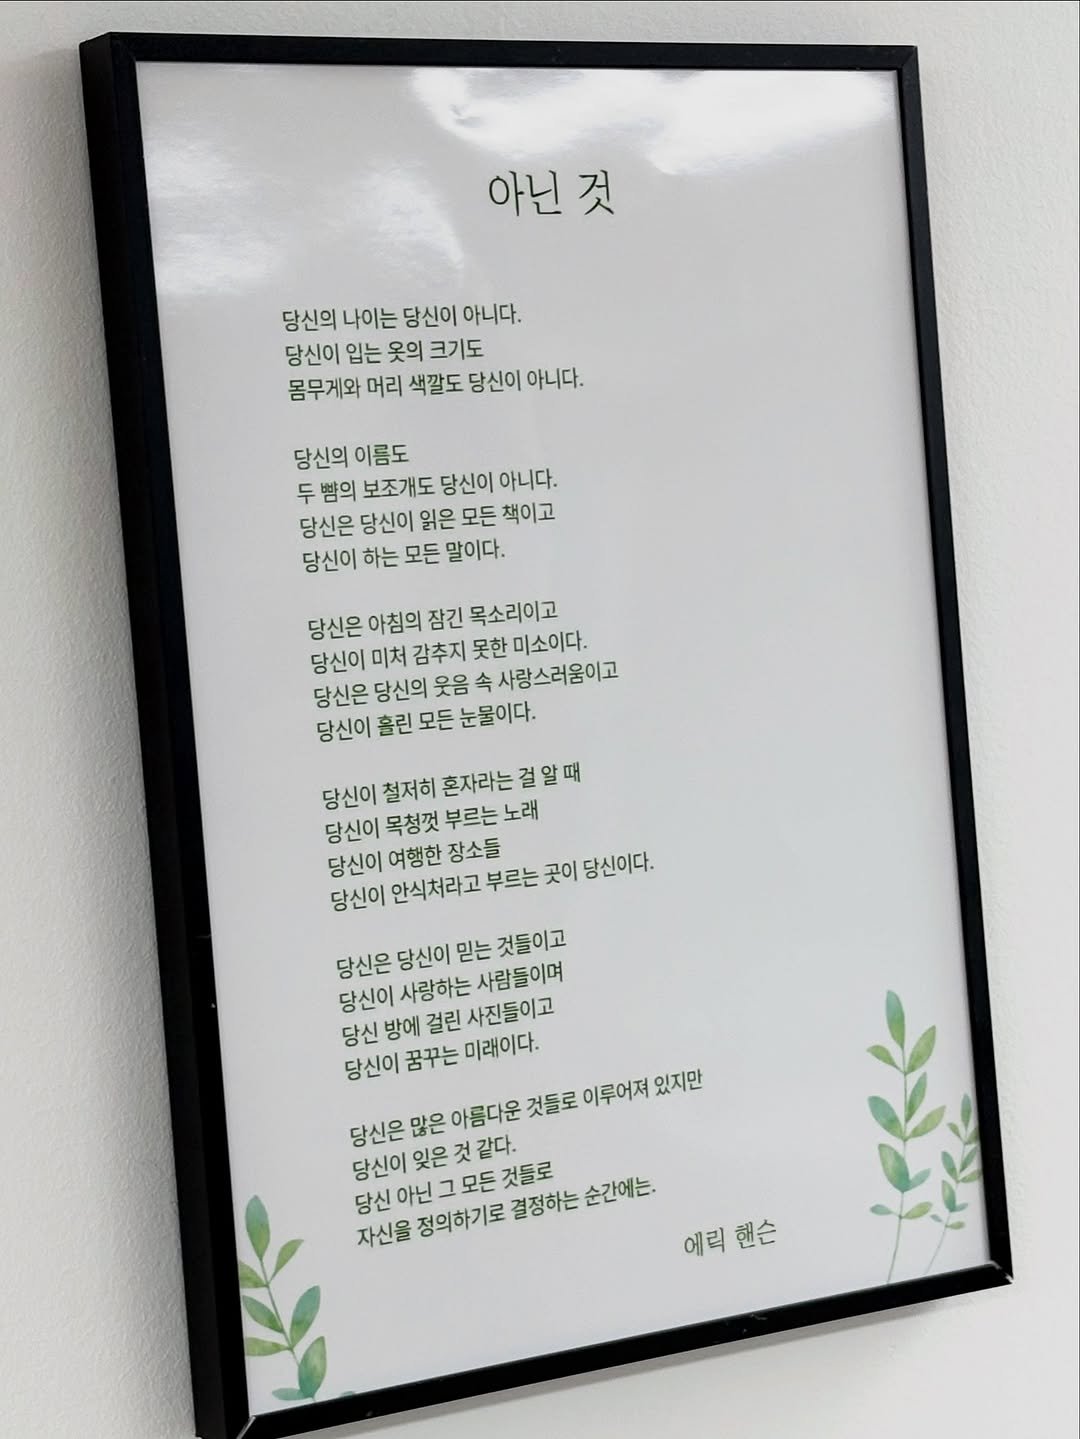 아닌 것
당신의 나이는 당신이 아니다.
당신이 입는 옷의 크기도
몸무게와 머리 색깔도 당신이 아니다.
당신의 이름도
두 뺨의 보조개도 당신이 아니다.
당신은 당신이 읽은 모든 책이고
당신이 하는 모든 말이다.
당신은 아침의 잠긴 목소리이고
당신이 미처 감추지 못한 미소이다.
당신은 당신의 웃음 속 사랑스러움이고
당신이 흘린 모든 눈물이다.
당신이 철저히 혼자라는 걸 알 때
당신이 목청껏 부르는 노래
당신이 여행한 장소들
당신이 안식처라고 부르는 곳이 당신이다.
당신은 당신이 믿는 것들이고
당신이 사랑하는 사람들이며
당신 방에 걸린 사진들이고
당신이 꿈꾸는 미래이다.
당신은 많은 아름다운 것들로 이루어져 있지만
당신이 잊은 것 같다.
당신 아닌 그 모든 것들로
자신을 정의하기로 결정하는 순간에는.
에릭 핸슨